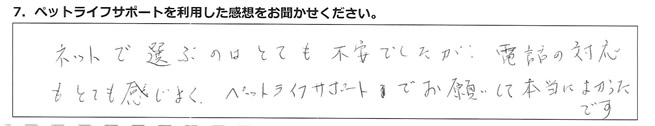 7．ペットライフサポートを利用した感想をお聞かせください。
ネットで選ぶのはとても不安でしたが、電話の対応
もとても感じよく、ペットライフサポートでお願いして本当によかった
です